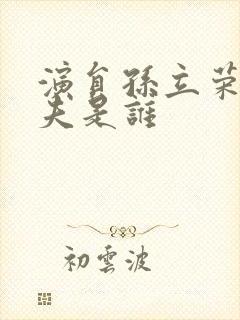 演員孫立荣
夫是誰
初雲波